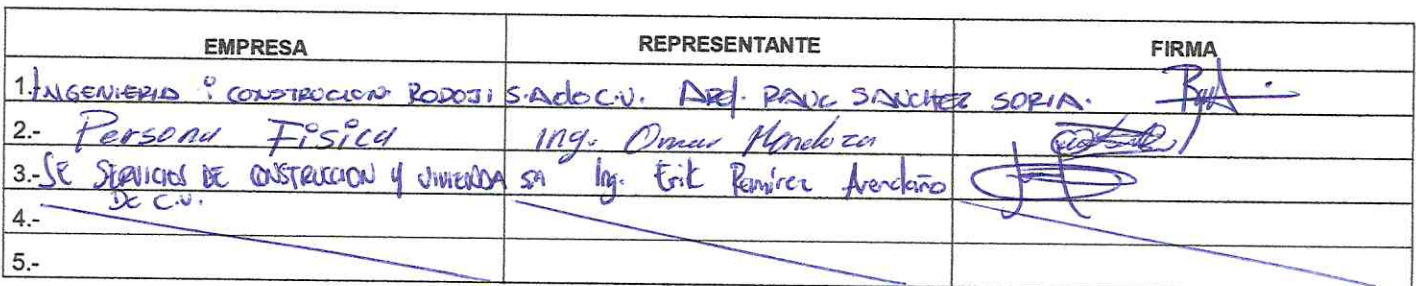 EMPRESA REPRESENTANTE FIRMA
1.- INGENIERIA Y CONSTRUCCION RODOJI S.A de C.V. ARQ. RAUL SANCHEZ SORIA.
2.- Persona Física Ing. Omar Mendoza
3.- SE SERVICIOS DE CONSTRUCCION Y VIVIENDA SA Ing. Erik Ramirez Avendaño
DE C.V.
4.-
5.-